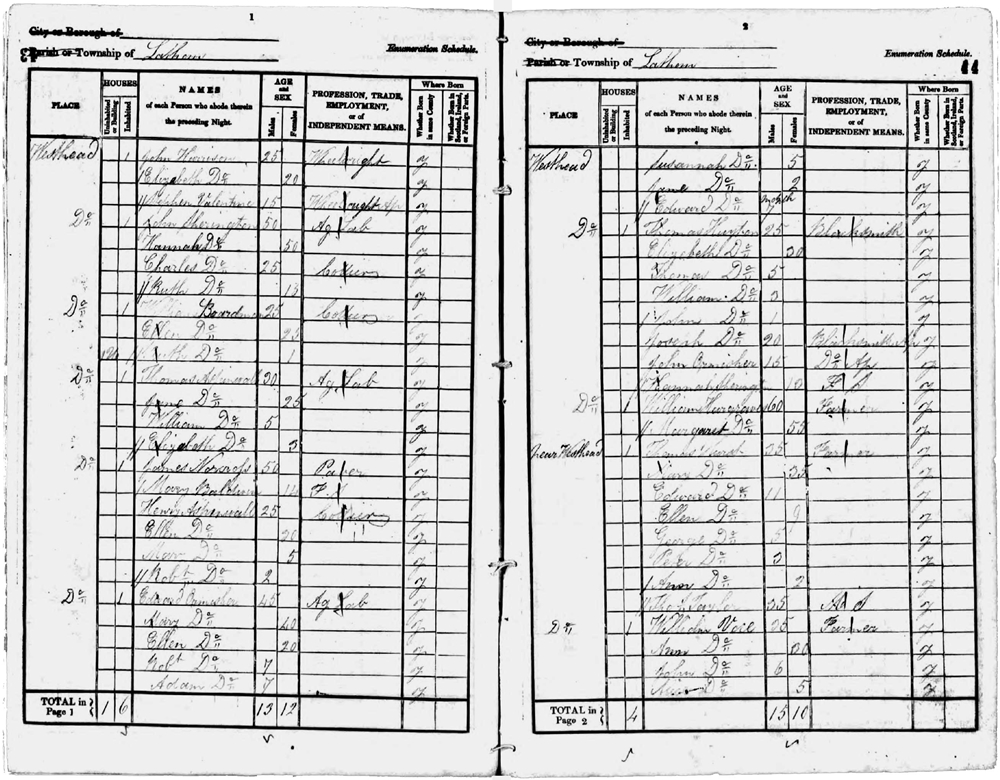 1
City or Borough of
Parish or Township of Lathom
Enumeration Schedule.
PLACE
HOUSES
Uninhabited or Building
Inhabited
NAMES of each Person who abode therein the preceding Night.
AGE and SEX
Males
Females
PROFESSION, TRADE, EMPLOYMENT, or of INDEPENDENT MEANS.
Where Born
Whether Born in same County
Whether Born in Scotland, Ireland, or Foreign Parts.
Westhead 1 John 25 y
Elizabeth Do 20 y
Stephen Valentine 15 y
Do 1 John 50 Ag Lab y
Hannah Do 50 y
Charles Do 25 Collier y
Ruth Do 13 y
Do 1 William Boardman 25 Collier y
Ellen Do 25 y
Do 1 y
Do 1 Thomas Aspinwall 30 Ag Lab y
Jane Do 25 y
William Do 5 y
Elizabeth Do 3 y
Do 1 James Norcross 50 y
Mary 14 F S y
Henry 25 Collier y
Ellen Do 20 y
Mary Do 5 y
Robt Do 2 y
Do 1 45 Ag Lab y
Mary Do 40 y
Ellen Do 20 y
Robt Do 7 y
Adam Do 7 y
TOTAL in Page 1 1 6 13 12
2
City or Borough of
Parish or Township of Lathom
Enumeration Schedule.
44
PLACE
HOUSES
Uninhabited or Building
Inhabited
NAMES of each Person who abode therein the preceding Night.
AGE and SEX
Males
Females
PROFESSION, TRADE, EMPLOYMENT, or of INDEPENDENT MEANS.
Where Born
Whether Born in same County
Whether Born in Scotland, Ireland, or Foreign Parts.
Westhead Susannah Do 5 y
Jane Do 2 y
Edward Do y
Do 1 Thomas 25 Blacksmith y
Elizabeth Do 30 y
Thomas Do 5 y
William Do 3 y
John Do 1 y
Joseph Do 20 Blacksmith Ap y
John Ormisher 15 Do Ap y
Hannah F S y
Do 1 William 60 Farmer y
Margaret Do 55 y
Near Westhead 1 Thomas 35 Farmer y
Mary Do 35 y
Edward Do 11 y
Ellen Do 9 y
George Do 5 y
Peter Do 3 y
Ann Do 2 y
Taylor 35 y
Do 1 William 35 Farmer y
Ann Do 30 y
John Do 6 y
Do 5 y
TOTAL in Page 2 4 15 10